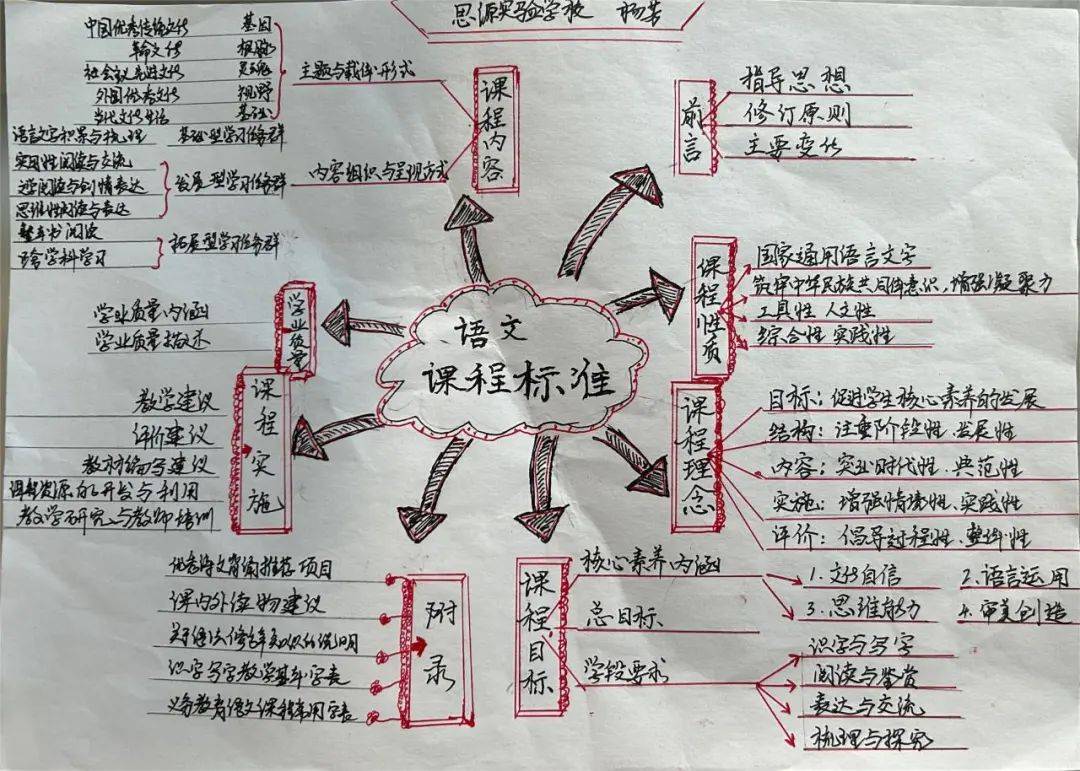 思源实验学校 杨芳
语文
课程标准
前言
指导思想
修订原则
主要变化
课程性质
国家通用语言文字
筑牢中华民族共同体意识,增强凝聚力
工具性 人文性
综合性 实践性
课程理念
目标:促进学生核心素养的发展
结构:注重阶段性.发展性
内容:突出时代性.典范性
实施:增强情境性.实践性
评价:倡导过程性.整体性
课程目标
核心素养内涵
1.文化自信 2.语言运用
3.思维能力 4.审美创造
总目标
学段要求
识字与写字
阅读与鉴赏
表达与交流
梳理与探究
附录
优秀诗文背诵推荐项目
课内外读物建议
关于语法修辞知识的说明
识字写字教学基本字表
义务教育语文课程常用字表
课程实施
教学建议
评价建议
教材编写建议
课程资源的开发与利用
教学研究与教师培训
学业质量
学业质量内涵
学业质量描述
课程内容
主题与载体形式
中国优秀传统文化 基因
革命文化
社会主义先进文化 灵魂
外国优秀文化 视野
当代文化生活 基础
内容组织与呈现方式
语言文字积累与梳理 基础型学习任务群
实用性阅读与交流
思维性阅读与表达
发展型学习任务群
整本书阅读
跨学科学习
拓展型学习任务群